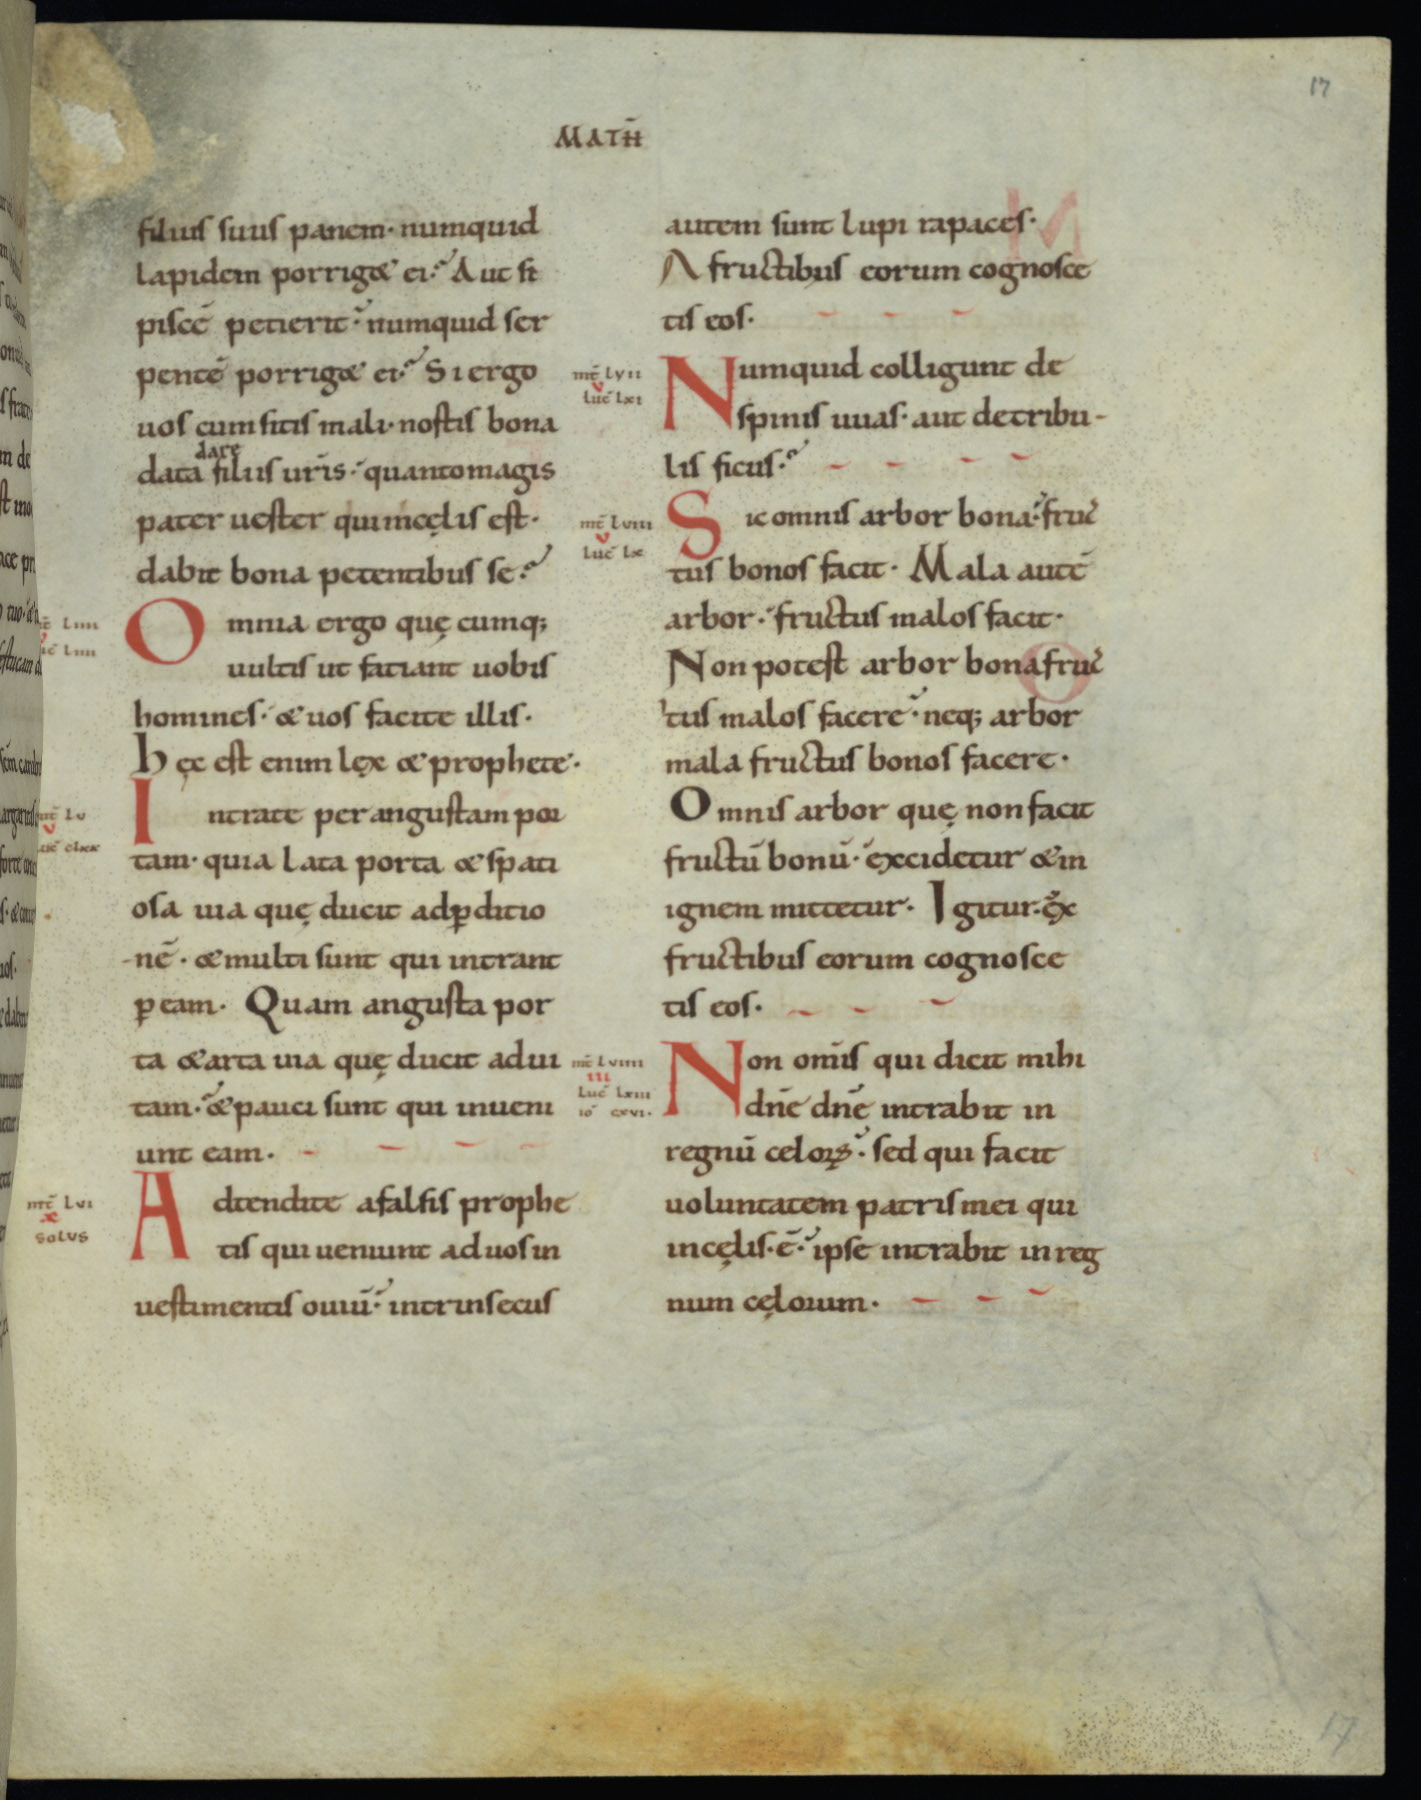 17
MATH̄
filius suus panem· numquid
lapidem porriget ei? Aut si
piscē petierit· numquid ser
pentē porriget ei? Si ergo
uos cum sitis mali· nostis bona
dare
data filiis ur̄is· quanto magis
pater uester qui in cęlis est·
dabit bona petentibus se?
Omnia ergo quę cumq;
uultis ut fatiant uobis
homines· & uos facite illis·
hęc est enim lęx & prophete·
Intrate per angustam por
tam· quia lata porta & spati
osa uia quę ducit ad ꝑditio
nē· & multi sunt qui intrant
ꝑ eam· Quam angusta por
ta & arta uia quę ducit ad ui
tam· & pauci sunt qui inueni
unt eam·
Adtendite a falsis prophe
tis qui ueniunt ad uos in
uestimentis ouiū· intrinsecus
mt̄ LVI
x
SOLVS
autem sunt lupi rapaces·
A fructibus eorum cognosce
tis eos·
mt̄ LVII
v
Luc̄ LXI
Numquid colligunt de
spinis uuas· aut de tribu-
lis ficus?
mt̄ LVIII
v
Luc̄ Lx
Sic omnis arbor bona· fruc
tus bonos facit· Mala autē
arbor· fructus malos facit·
Non potest arbor bona fruc
tus malos facere· neq; arbor
mala fructus bonos facere·
Omnis arbor quę non facit
fructū bonū· excidetur & in
ignem mittetur· Igitur· ex
fructibus eorum cognosce
tis eos·
mt̄ LVIIII
III
Luc̄ LXIII
io̅ CXVI·
Non om̄is qui dicit mihi
dn̄e dn̄e intrabit in
regnū celoꝝ· sed qui facit
uoluntatem patris mei qui
in cęlis· ē· ipse intrabit in reg
num cęlorum·
17